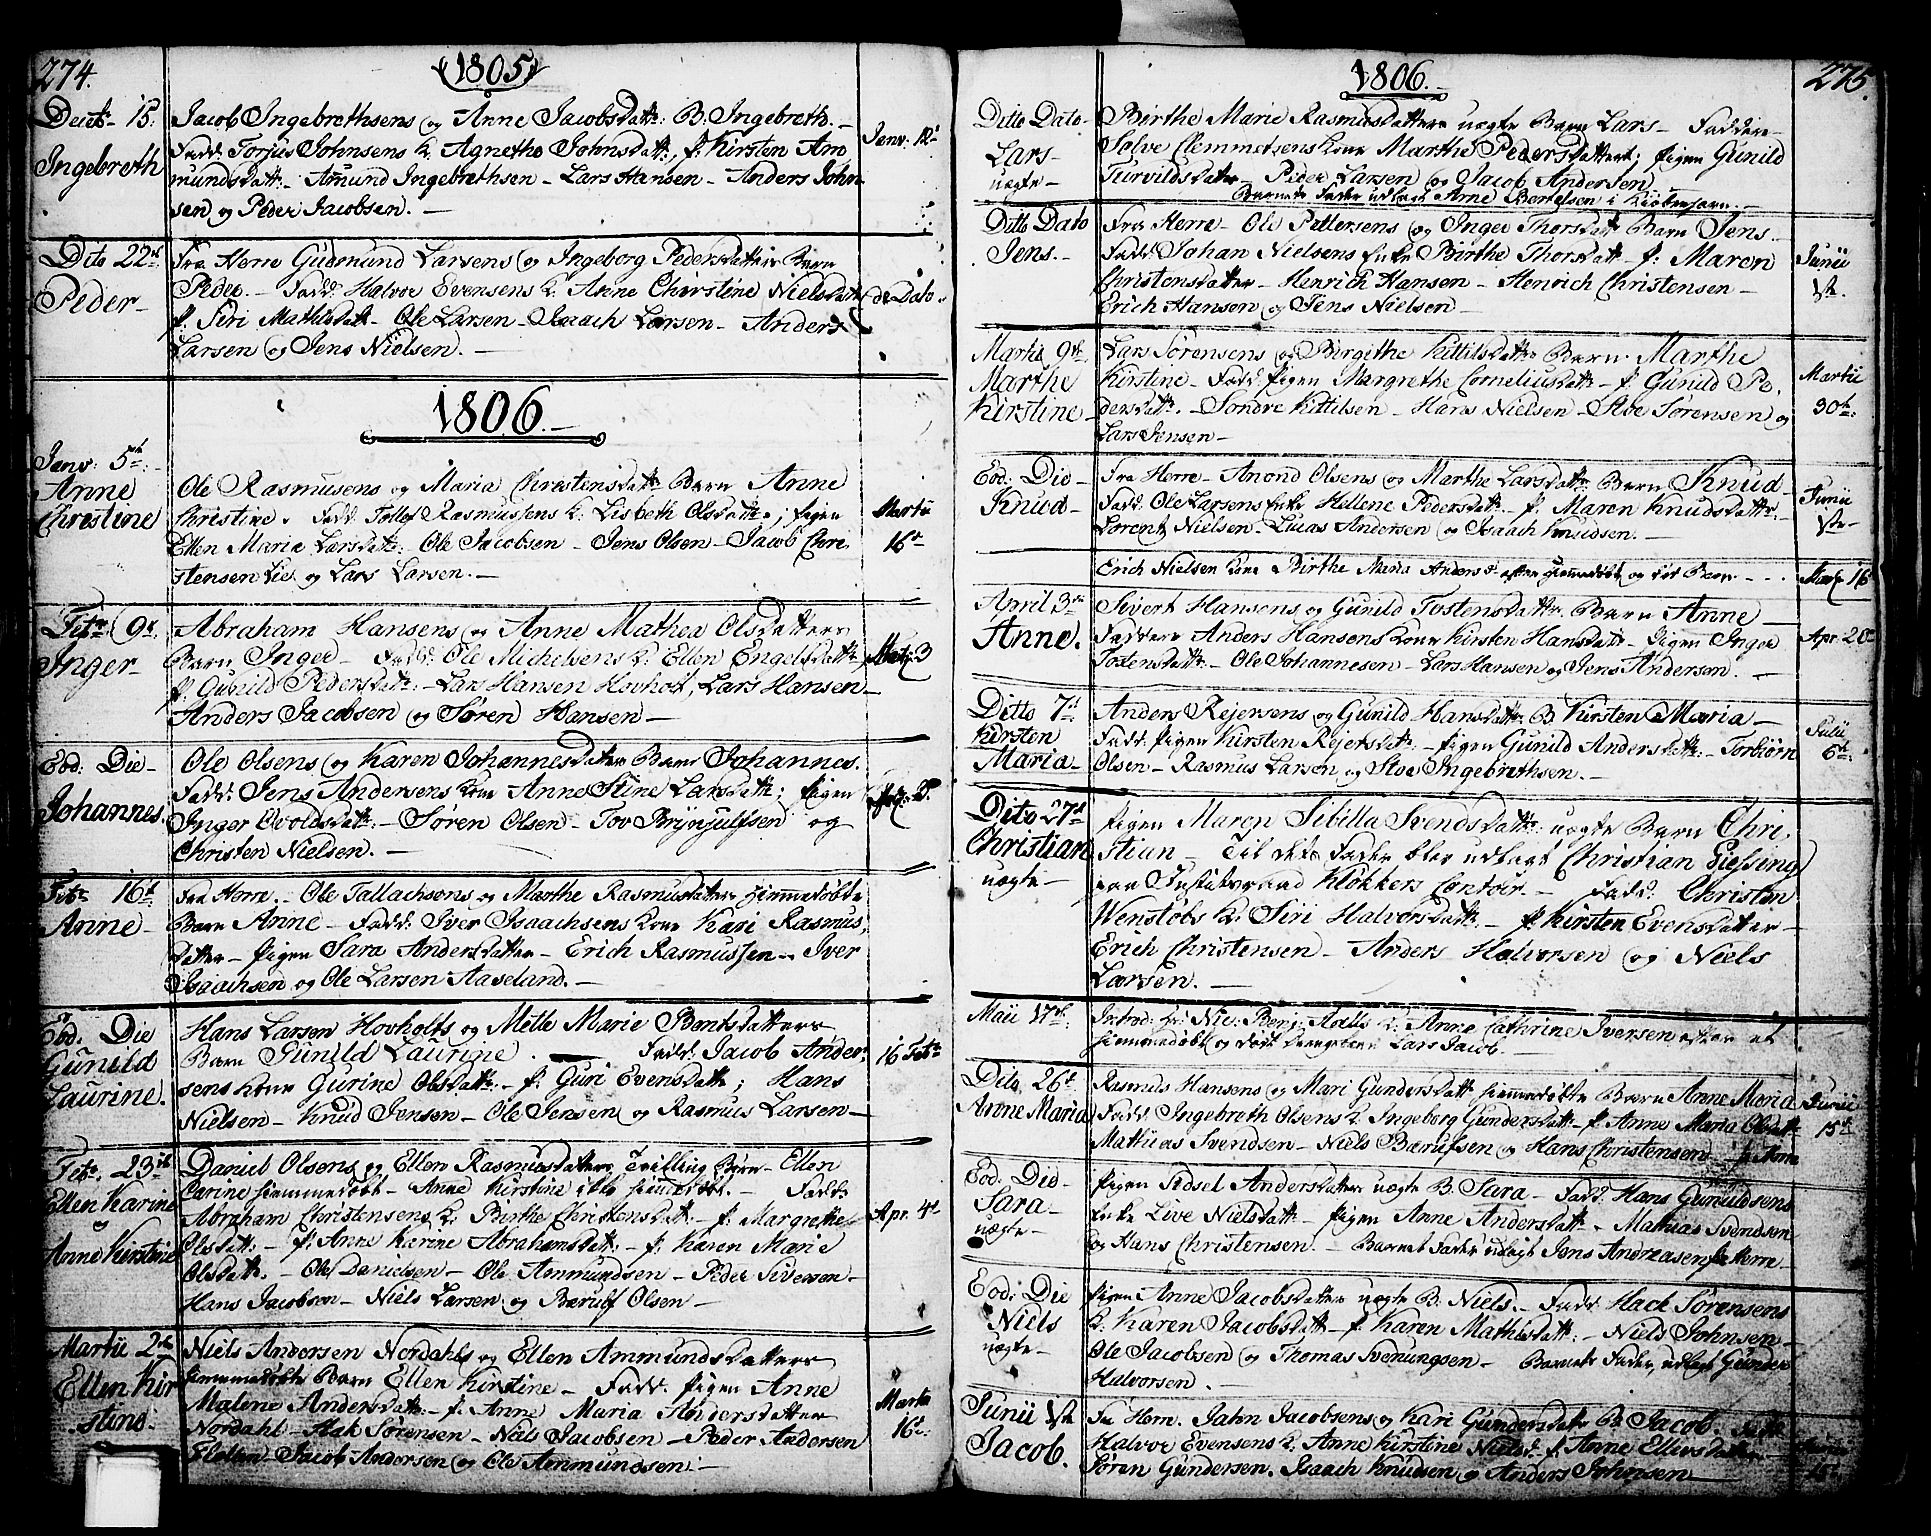 274.
1805
Decbr 15:
Ingebreth
Jacob Ingebrethsens og Anne Jacobsdatt: B. Ingebreth. –
Fadd: Torjus Johnsens K: Agnethe Johnsdatt:, p: Kirsten Am
mundsdatt: – Amund Ingebrethsen – Lars Hansen – Anders John
sen og Peder Jacobsen. –
Janv: 12t
Dito 22d
Peder –
Fra Herre Gudmund Larsens og Ingeborg Pedersdatters Barn
Peder. – Fadd: Halvor Evensens K: Anne Christine Nielsdatt
p. Siri Mathisdatt – Ole Larsen – Isaach Larsen – Anders
Larsen og Jens Nielsen. –
de Dato
1806. –
Janv: 5th: –
Anne
Christine
Ole Rasmusens og Maria Chrestensdatt: Barn Anne
Christine. Fadd: Tollef Rasmussens K: Lisbeth Olsdatt:; pigen
Ellen Maria Larsdatt: Ole Jacobsen – Jens Olsen – Jacob Chre
stensen Lie og Lars Larsen. –
Martii
16d
Febr: 9d
Inger –
Abraham Hansens og Anne Mathea Olsdatters
Barn Inger – Fadd: Ole Michelsens K: Ellen Engelsdatt:
p: Gunild Pedersdatt: – Lars Hansen Hovholt, Lars Hansen –
Anders Jacobsen og Søren Hansen –
Eod: Die –
Johannes.
Ole Olsens og Karen Johannesdatters Barn Johannes.
Fadd: Jens Andersens Kone Anne Stine Larsdatt:; pigen
Inger Ovoldsdatt: – Søren Olsen – Tov Brynjulfsen og
Christen Nielsen. –
Febr: 16d
Anne –
Fra Herre. – Ole Tallachsens og Marthe Rasmusdatters hiemmedøbte
Barn Anne – Fadd: Iver Isaachsens Kone Kari Rasmus,
datter – pigen Sara Andersdatter – Erich Rasmussen – Iver
Isaachsen og Ole Larsen Aaseland. –
Eod: Die
Gunild
Laurine.
Hans Larsen Hovholts og Mette Marie Bentsdatters
Barn Gunild Laurine. – Fadd: Jacob Ander,
sens Kone Gurine Olsdatt: – p: Guri Evensdatt; Hans
Nielsen – Knud Jensen – Ole Jensen og Rasmus Larsen –
16 Febr
Febr: 23d
Ellen Karine
og
Anne Kirstine
Daniel Olsens og Ellen Rasmusdatters Tvilling Børn – Ellen
Carine hiemmedøbt – Anne Kirstine ikke hiemedøbt. – Fadd:
Abraham Christensens K: Birthe Christensdatt: – p: Margrethe
Olsdatt: – p: Anne Karine Abrahamsdatt: – p: Karen Marie
Olsdatt: – Ole Danielsen – Ole Ammundsen – Peder Siversen –
Hans Jacobsen – Niels Larsen og Bærulf Olsen –
Apr: 4d
Martii 2den
Ellen Kir
stine:
Niels Andersen Nordahls og Ellen Ammundsdatters
hiemmedøbte Barn Ellen Kirstine – Fadd: pigen Anne
Malene Andersdatt: – p: Anne Maria Andersdatter
Nordahl – Hak Sørensen – Niels Jacobsen – Peder Andersen
Jacob Andersen og Ole Ammundsen: –
Martii
16d
275.
1806. –
Ditto Dato
Lars –
uægte –
Birthe Marie Rasmusdatters uægte Barn Lars – Faddere –
Sølve Clemmetsens Kone Marthe Pedersdatter; pigen Gunild
Turvildsdatter – Peder Larsen og Jacob Andersen
Barnets Fader udlagt Arne Bertelsen i Kiøbenhavn. –
Ditto Dato
Jens. –
Fra Herre – Ole Pettersens og Inger Thorsdatt Barn Jens. –
Fadd: Johan Nielsens Enke Birthe Thorsdatt – p: Maren
Christensdatter – Henrich Hansen – Henrich Christensen –
Erich Hansen og Jens Nielsen –
Junii
1ste.
Martii 9de
Marthe
Kirstine –
Lars Sørensens og Birgithe Kittilsdatt: Barn Marthe
Kirstine – Fadd: pigen Margrethe Corneliusdatt: – p: Gunild Pe,
dersdatt: – Søndre Kittilsen – Hans Nielsen – Stoe Sørensen og
Lars Jensen –
Martii
30te:
Eod: Die
Knud –
Fra Herre – Anond Olsens og Marthe Larsdatt: Barn Knud –
Fadd: Ole Larsens Enke Hellene Pedersdatt: – p: Maren Knudsdatter –
Lorentz Nielsen – Lucas Andersen og Isaach Knudsen. –
Junii
1ste –
Erich Nielsen Kone Birthe Maria Andersd: efter hiemmedøbt og død Barn – – –
Martz 16
April 3die
Anne.
Sivert Hansens og Gunild Tostensdatt: Barn Anne –
Faddere Anders Hansens Kone Kirsten Hansdatt: – pigen Inger
Tostensdatt: – Ole Johannesen – Lars Hansen og Jens Andersen. –
Apr: 20
Ditto 7d
Kirsten
Maria –
Anders Rejersens og Gunild Hansdatt: B: Kirsten Maria –
Fadd: pigen Kirsten Rejersdatt: – pigen Gunild Andersdatt: – Torbiørn
Olsen – Rasmus Larsen og Stoe Ingebrethsen. –
Julii
6te:
Dito 27d
Christian
uægte –
pigen Maren Sibilla Svendsdatt: uægte Barn Chri,
stian – Til dets Fader blev udlagt Christian Giessing
paa Justitsraad Kløkkers Contoir. – Fadd: Christen
Wenstøbs K: Siri Halvorsdatt: – p: Kirsten Evensdatter –
Erich Christensen – Anders Halvorsen og Niels
Larsen. –
Maii 17d:
Introd: Hr: Nic: Benj: Aalls K: Anne Cathrine Iversen efter et
hiemmedøbt og dødt Drengebarn Lars Jacob. –
Dito 26d
Anne Maria
Rasmus Hansens og Mari Gundersdatt hiemmedøbte Barn Anne Maria
Fadd: Ingebreth Olsens K: Ingeborg Gundersdatt: – p: Anne Maria Olsdatt:
Mathias Svendsen – Niels Bærulfsen og Hans Christensen – fra Herre
Junii
15de
Eod: Die –
Sara –
uægte –
pigen Sidsel Andersdatters uægte B: Sara – Fadd: Hans Gunuldsens
Enke Live Nielsdatt: – pigen Anne Andersdatt: – Mathias Svendsen
og Hans Christensen. – Barnets Fader udlagt Jens Andreasen fra Herre –
Eod: Die
Niels
uægte –
pigen Anne Jacobsdatters uægte B: Niels. – Fadd: Hack Sørensens
K: Karen Jacobsdatt – p: Karen Mathisdatt: – Niels Johnsen –
Ole Jacobsen og Thomas Svenungsen – Barnets Fader udlagt Gunder
Halvorsen. –
Junii 1ste
Jacob.
Fra Herre. Jahn Jacobsens og Kari Gundersdatter B: Jacob. Fadd:
Halvor Evensens K: Anne Kirstine Nielsd: p: Anne Ellevsdatter
Søren Gundersen. Isaach Knudsen og Anders Johnsen –
15d